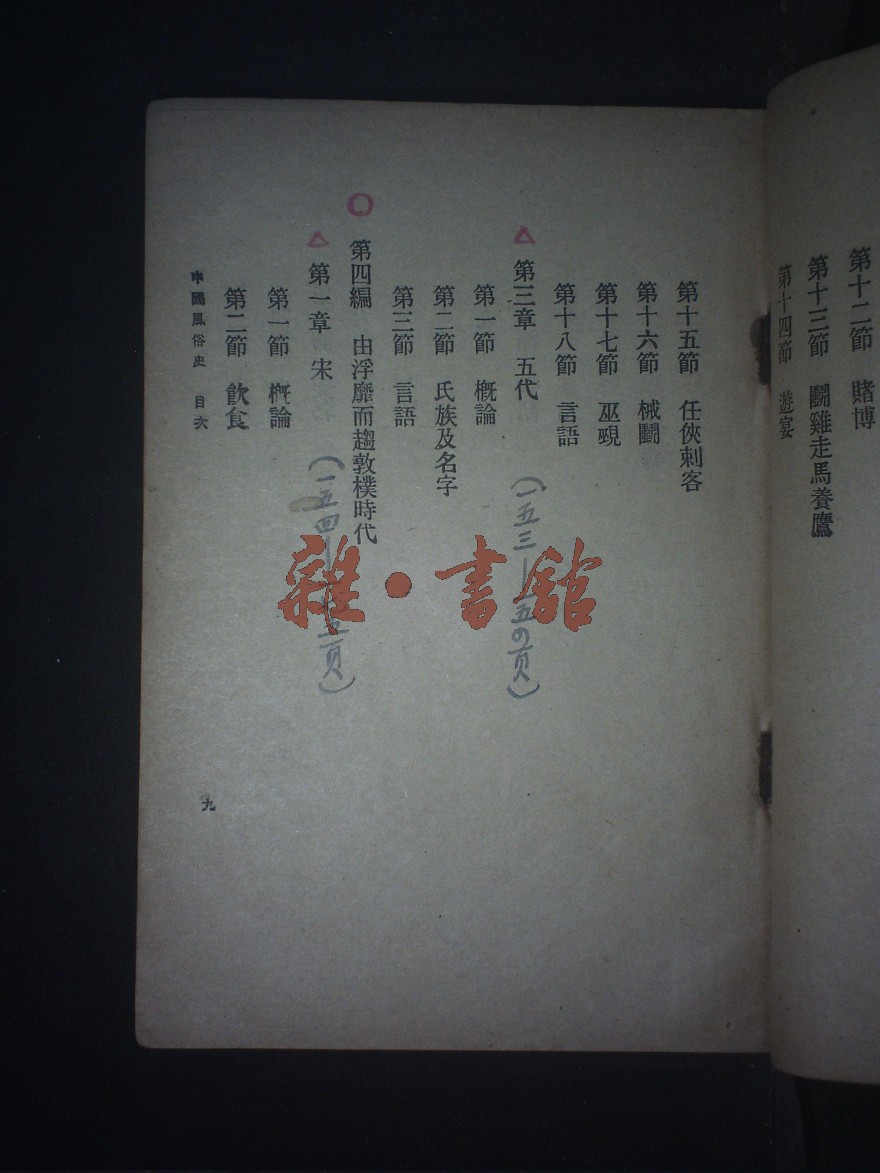 第十二節　賭博
第十三節　鬭雞走馬養鷹
第十四節　遊宴
第十五節　任俠刺客
第十六節　械鬭
第十七節　巫覡
第十八節　言語
第三章　五代　（一五三—一五の頁）
第一節　概論
第二節　氏族及名字
第三節　言語
第四編　由浮靡而趨敦樸時代
第一章　宋
第一節　概論
第二節　飲食
中國風俗史　目次
九
雜·書館